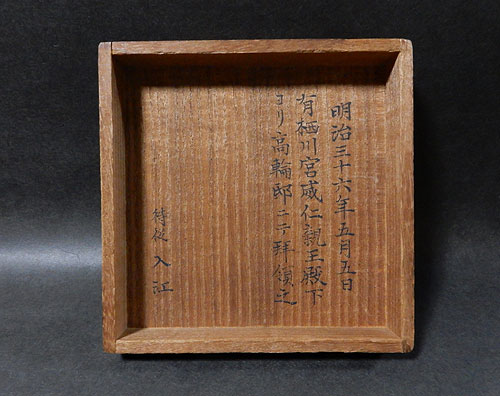 明治三十六年五月五日
有栖川宮威仁親王殿下
ヨリ高輪邸ニテ拝領之
侍従 入江